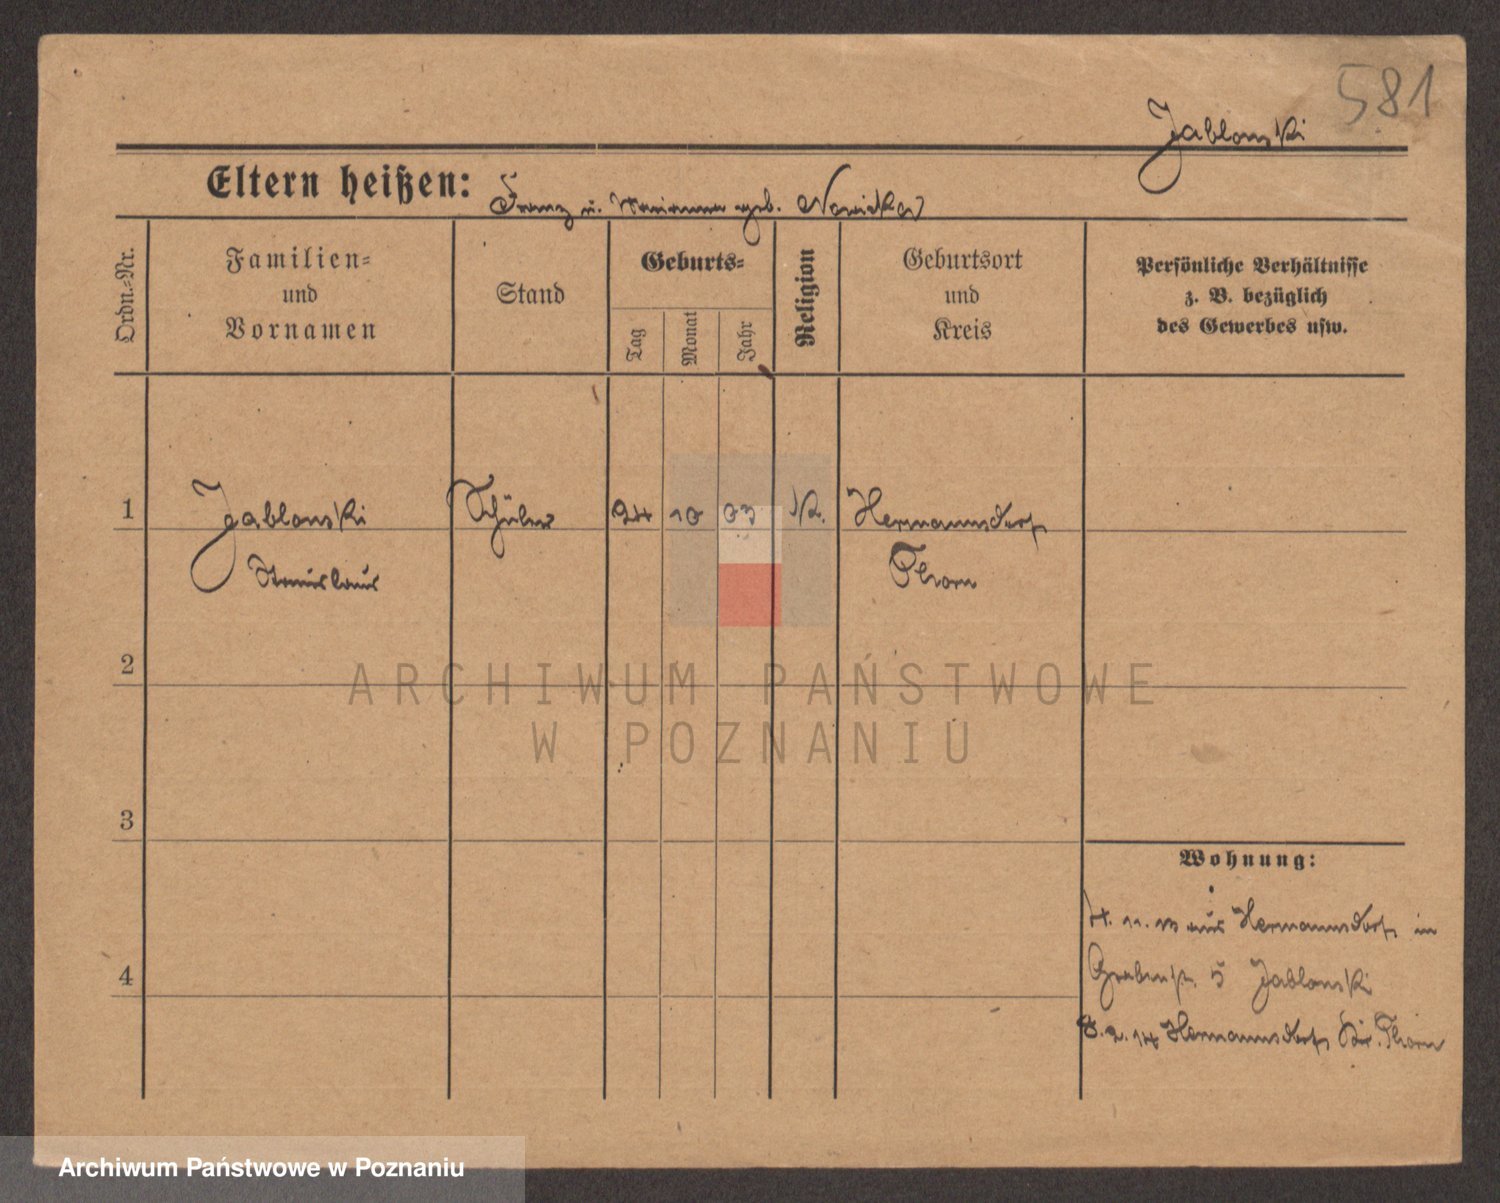 581
Jablonski
Eltern heißen: Franz u. Marianna geb. Nowicka
Ordn.-Nr.
Familien-
und
Vornamen
Stand
Geburts-
Tag
Monat
Jahr
Religion
Geburtsort
und
Kreis
Persönliche Verhältnisse
z. B. bezüglich
des Gewerbes usw.
1
Jablonski
Stanislaus
Schüler
24
10
03
K.
Hermannsdorf
Thorn
2
3
4
Wohnung:
4. 11. 13 aus Hermannsdorf in
Grabenst. 5 Jablonski
8. 2. 14 Hermannsdorf Kr. Thorn
ARCHIWUM PAŃSTWOWE
W POZNANIU
Archiwum Państwowe w Poznaniu